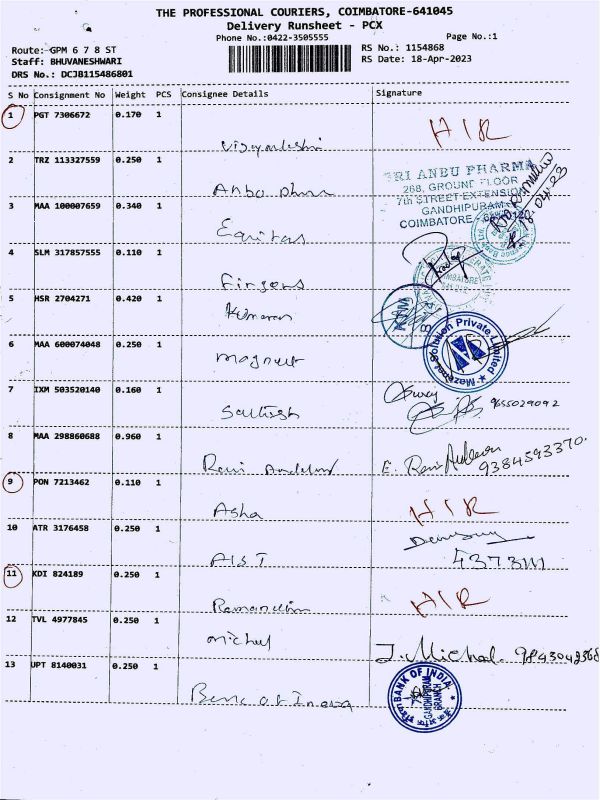 THE PROFESSIONAL COURIERS, COIMBATORE-641045
Delivery Runsheet - PCX
Phone No.:0422-3505555
Page No.:1
Route: GPM 6 7 8 ST
RS No.: 1154868
Staff: BHUVANESHWARI
RS Date: 18-Apr-2023
DRS No.: DCJB115486801
S No Consignment No Weight PCS Consignee Details Signature
1 PGT 7306672 0.170 1 HIR
2 TRZ 113327559 0.250 1 Anbu
SRI ANBU PHARMA
268, GROUND FLOOR
7th STREET EXTENSION
GANDHIPURAM
COIMBATORE
3 MAA 100007659 0.340 1 Equitas
4 SLM 317857555 0.110 1
5 HSR 2704271 0.420 1 Kumaran
6 MAA 600074048 0.250 1
Solution Private Limited
7 IXM 503520140 0.160 1 Sathish 9655029092
8 MAA 298860688 0.960 1 Ravi E. Ravi 9384593370.
9 PON 7213462 0.110 1 Asha HIR
10 ATR 3176458 0.250 1
11 KDI 824189 0.250 1 HIR
12 TVL 4977845 0.250 1 J. Michal. 9843042368
13 UPT 8140031 0.250 1 Bank of India
BANK OF INDIA
GANDHIPURAM
BRANCH